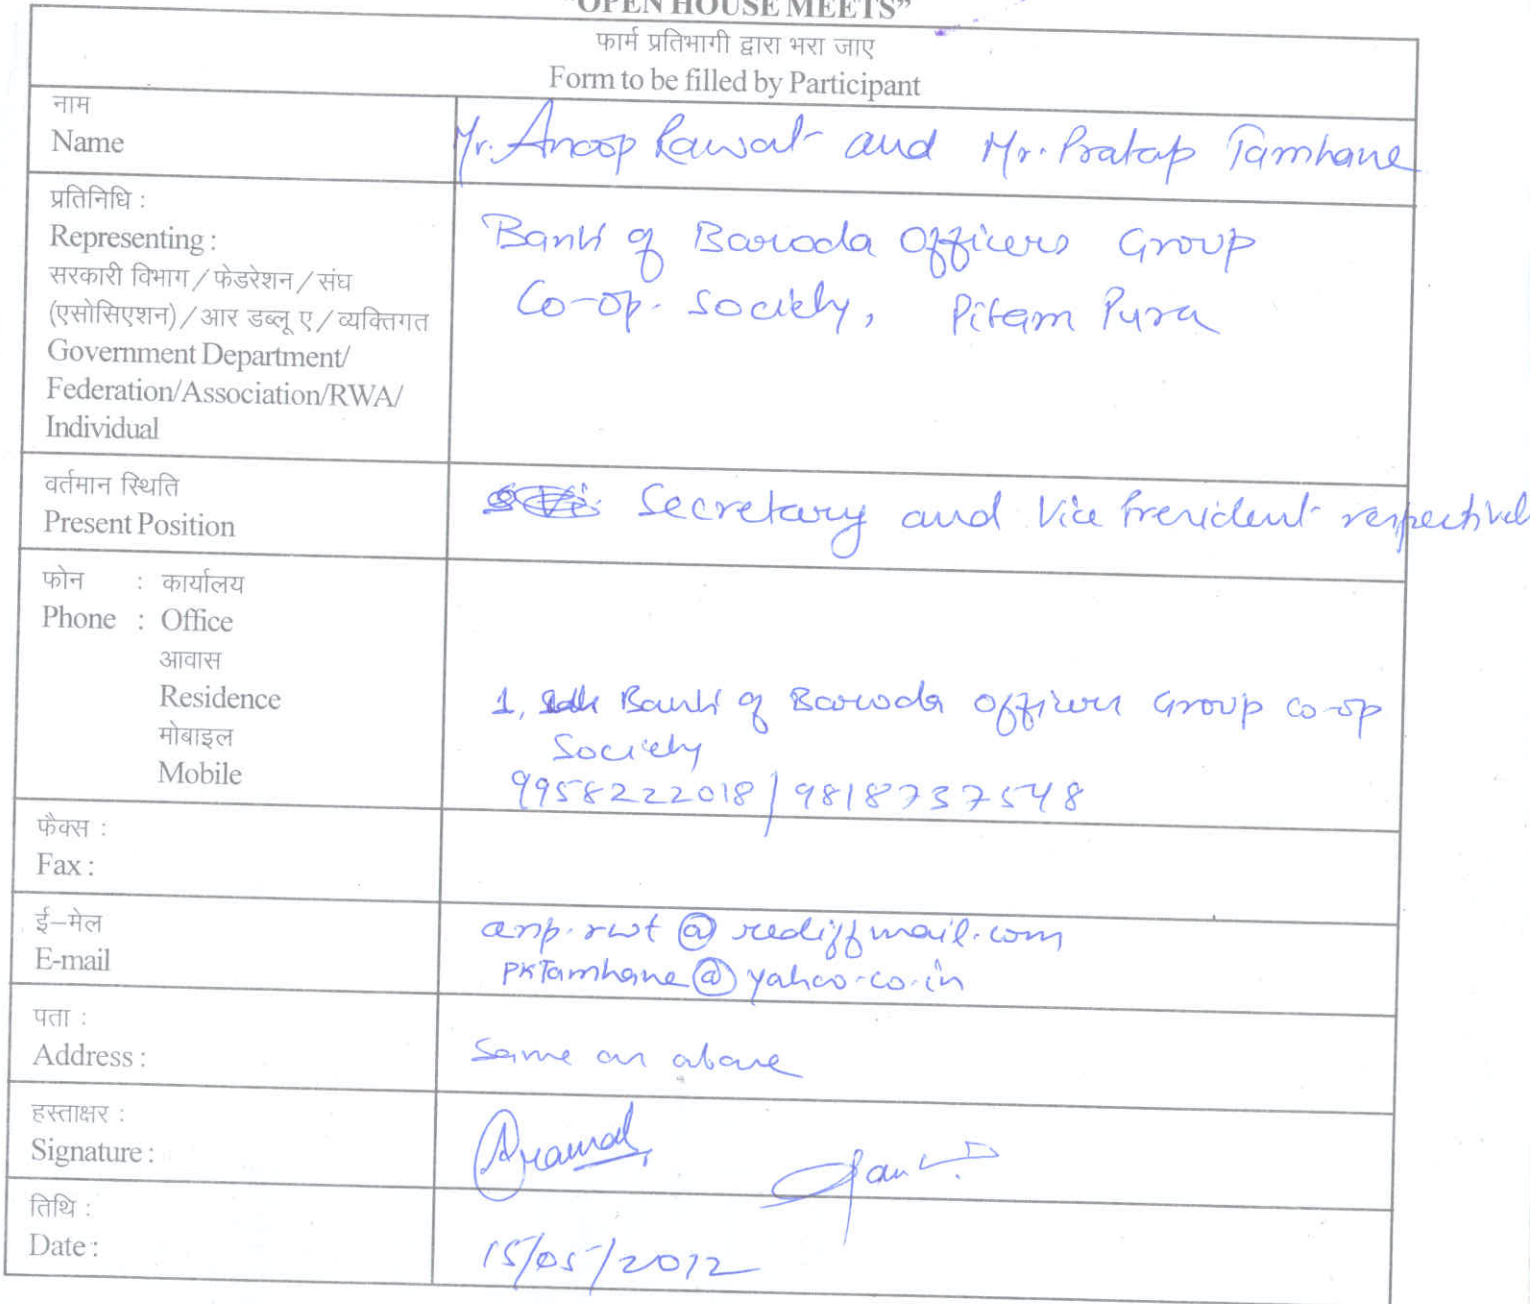 "OPEN HOUSE MEETS"
फार्म प्रतिभागी द्वारा भरा जाए
Form to be filled by Participant
नाम
Name
Mr. Anoop Rawat and Mr. Pratap Tamhane
प्रतिनिधि :
Representing :
सरकारी विभाग / फेडरेशन / संघ
(एसोसिएशन) / आर डब्लू ए / व्यक्तिगत
Government Department/
Federation/Association/RWA/
Individual
Bank of Baroda Officers Group
Co-op. Society, Pitam Pura
वर्तमान स्थिति
Present Position
Secretary and Vice President respectivel
फोन : कार्यालय
Phone : Office
आवास
Residence
मोबाइल
Mobile
1, Bank of Baroda officers Group co-op
Society
9958222018/9818737548
फैक्स :
Fax :
ई-मेल
E-mail
anp.rwt@rediffmail.com
PKTamhane@yahoo.co.in
पता :
Address :
Same as above
हस्ताक्षर :
Signature :
तिथि :
Date :
15/05/2012